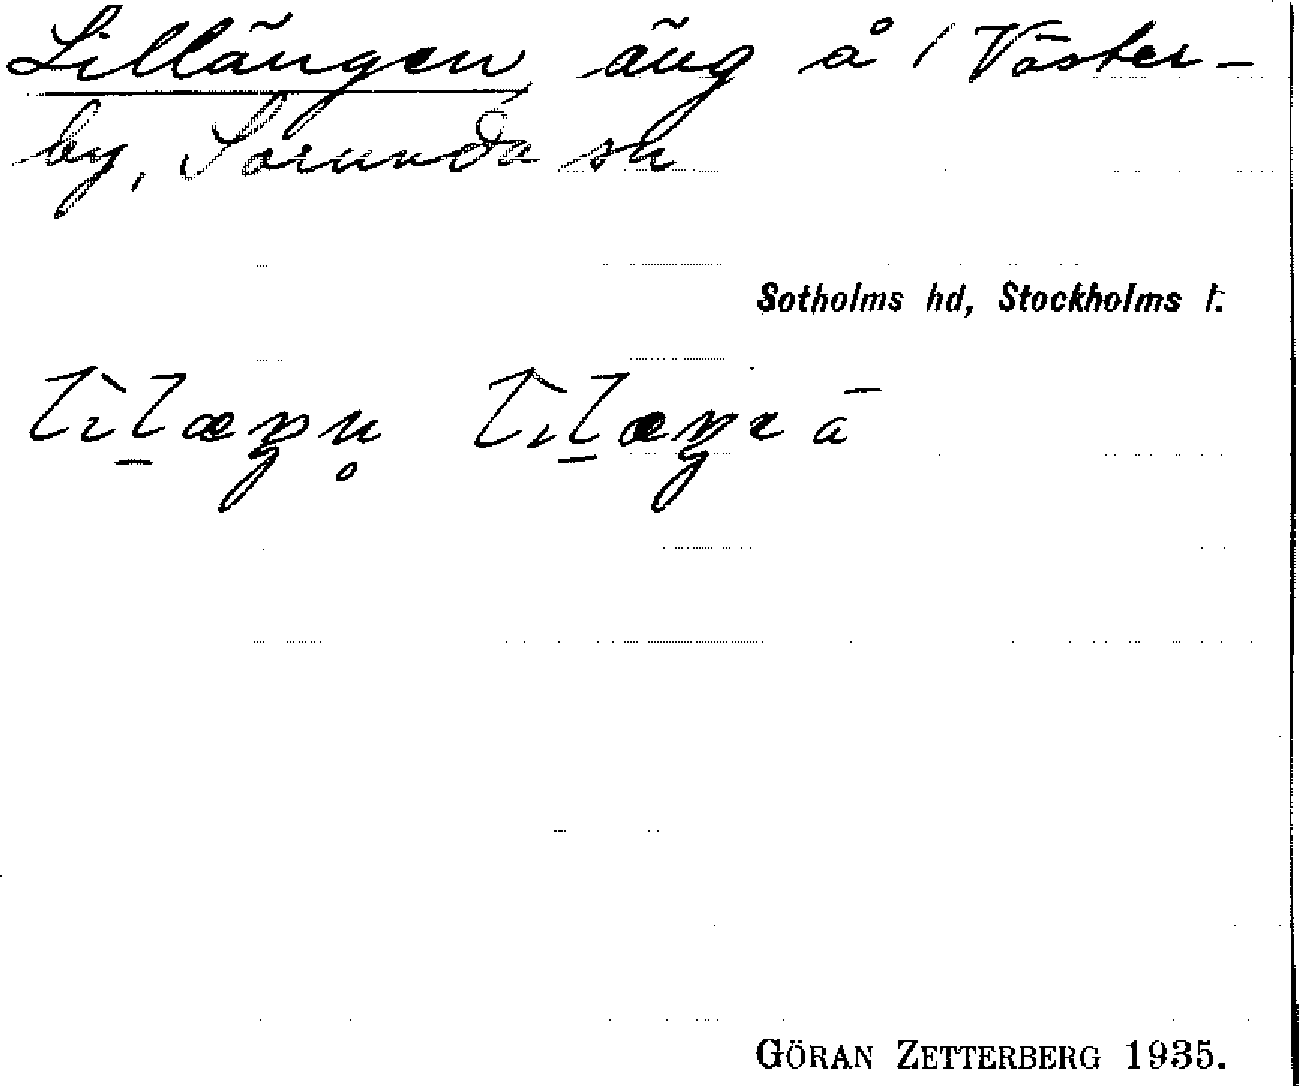 Lillängen äng å / Väster-
by, Sorunda sn
Sotholms hd, Stockholms l:
GÖRAN ZETTERBERG 1935.